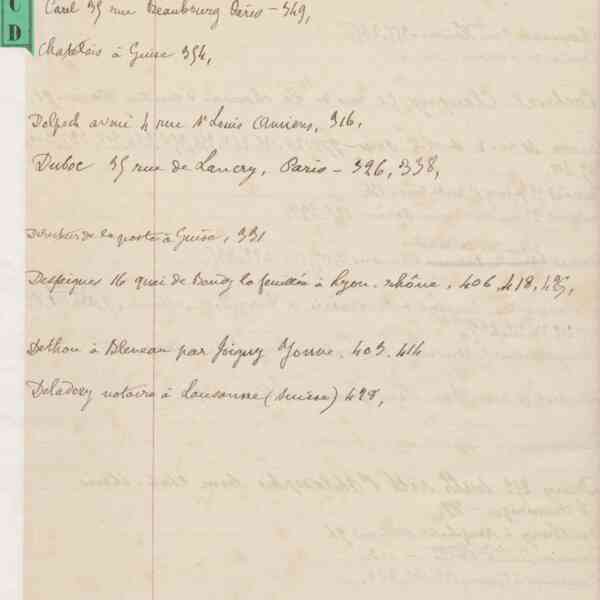 C
D
Carl 35 rue Beaubourg Paris - 349,
Chatelois à Guise 354,
Delpech avoué 4 rue St Louis Amiens, 316,
Duboc 35 rue de Lancry, Paris - 326, 338,
Directeur de la poste à Guise, 331
Despeignes 16 quai de la feuillée à Lyon. Rhône, 406, 418,
Dethou à Bleneau par Joigny Yonne. 403. 414
notaire à Lausanne (Suisse)